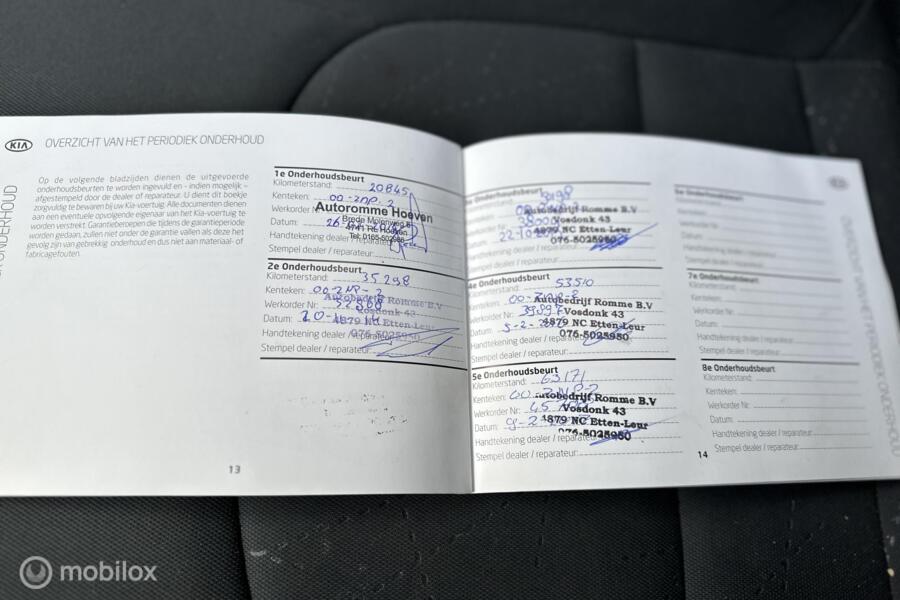 KIA OVERZICHT VAN HET PERIODIEK ONDERHOUD
Op de volgende bladzijden dienen de uitgevoerde
onderhoudsbeurten te worden ingevuld en - indien mogelijk -
afgestempeld door de dealer of reparateur. U dient dit boekje
zorgvuldig te bewaren bij uw Kia-voertuig. Alle documenten dienen
aan een eventuele opvolgende eigenaar van het Kia-voertuig te
worden verstrekt. Garantieberoepen die tijdens de garantieperiode
worden gedaan, zullen niet onder de garantie vallen als deze het
gevolg zijn van gebrekkig onderhoud en dus niet aan materiaal- of
fabricagefouten.
1e Onderhoudsbeurt
Kilometerstand: 20845
Kenteken: 00-ZNP-2
Werkorder
Autoromme Hoeven
Datum:
4741 RE Hoeven
Tel: 0165-502985
Handtekening dealer / reparateur
Stempel dealer / reparateur:
2e Onderhoudsbeurt
Kilometerstand: 35298
Kenteken: 00-ZNP-2
Autobedrijf Romme B.V
Werkorder Nr:
Vosdonk 43
Datum:
4879 NC Etten-Leur
Handtekening dealer / reparateur
076-5025950
Stempel dealer / reparateur:
13
Autobedrijf Romme B.V
Vosdonk 43
4879 NC Etten-Leur
076-5025950
Handtekening dealer / reparateur:
Stempel dealer / reparateur:
4e Onderhoudsbeurt
Kilometerstand: 53510
Kenteken:
Autobedrijf Romme B.V
Werkorder Nr:
Vosdonk 43
Datum:
4879 NC Etten-Leur
Handtekening dealer / reparateur
076-5025950
Stempel dealer / reparateur:
5e Onderhoudsbeurt
Kilometerstand: 63171
Kenteken:
Autobedrijf Romme B.V
Werkorder Nr:
Vosdonk 43
Datum:
4879 NC Etten-Leur
Handtekening dealer / reparateur
076-5025950
Stempel dealer / reparateur:
6e Onderhoudsbeurt
Kilometerstand:
Kenteken:
Werkorder Nr:
Datum:
Handtekening dealer / reparateur:
Stempel dealer / reparateur:
7e Onderhoudsbeurt
Kilometerstand:
Kenteken:
Werkorder Nr:
Datum:
Handtekening dealer / reparateur:
Stempel dealer / reparateur:
8e Onderhoudsbeurt
Kilometerstand:
Kenteken:
Werkorder Nr:
Datum:
Handtekening dealer / reparateur:
Stempel dealer / reparateur:
14
mobilox